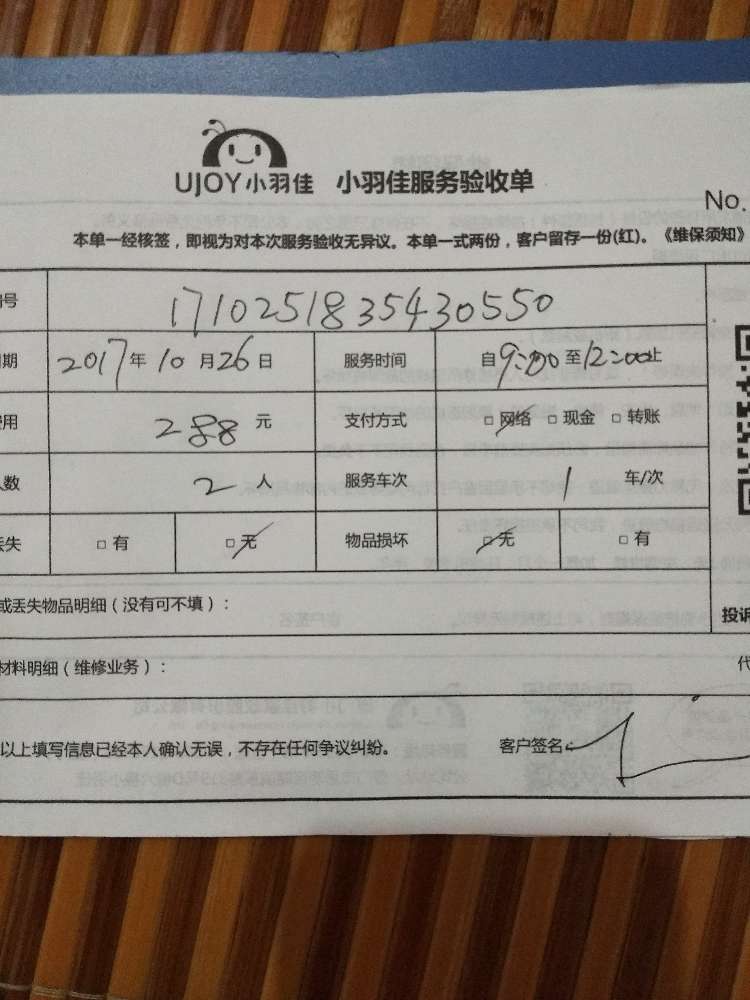 UJOY小羽佳 小羽佳服务验收单
No.
本单一经核签，即视为对本次服务验收无异议。本单一式两份，客户留存一份(红)。《维保须知》
号 1710251835430550
期 2017年10月26日 服务时间 自9:00至12:00止
用 288元 支付方式 □网络 □现金 □转账
人数 2人 服务车次 1 车/次
丢失 □有 □无 物品损坏 □无 □有
或丢失物品明细（没有可不填）：
投诉
材料明细（维修业务）：
代
以上填写信息已经本人确认无误，不存在任何争议纠纷。 客户签名